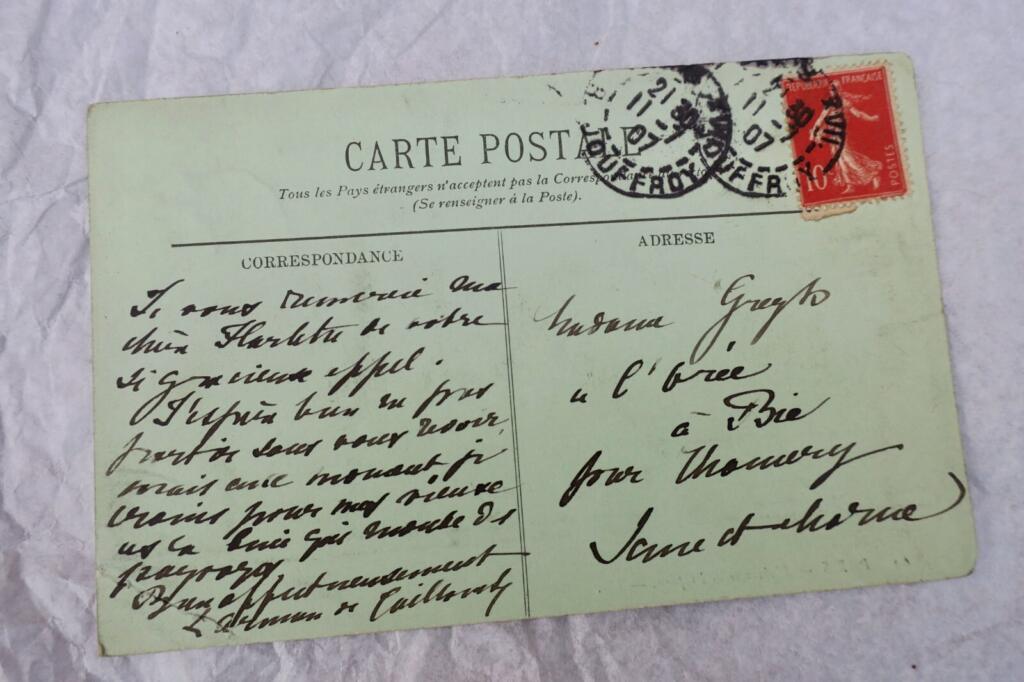 CARTE POSTALE
Tous les Pays étrangers n'acceptent pas la Correspondance
(Se renseigner à la Poste).
CORRESPONDANCE
ADRESSE
REPUBLIQUE FRANÇAISE
10
POSTES
21
11
07
JOUFFROY
11
07
JOUFFROY
XVII
Je vous remercie ma
chère de votre
si gracieux appel.
J'espère bien ne pas
partir sans vous revoir
mais en ce moment je
crains pour mes vieux
os la qui monte de
Bien affectueusement
de
Madame Gregh
à l'orée
à Bie
par Thomery
Seine et Marne